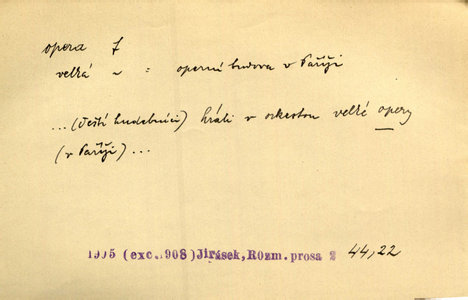 opera f
velká ~ = operní budova v Paříži
...(čeští hudebníci) hráli v orkestru velké opery
(v Paříži)...
1905 (exc.1908) Jirásek, Rozm. prosa 2 44,22